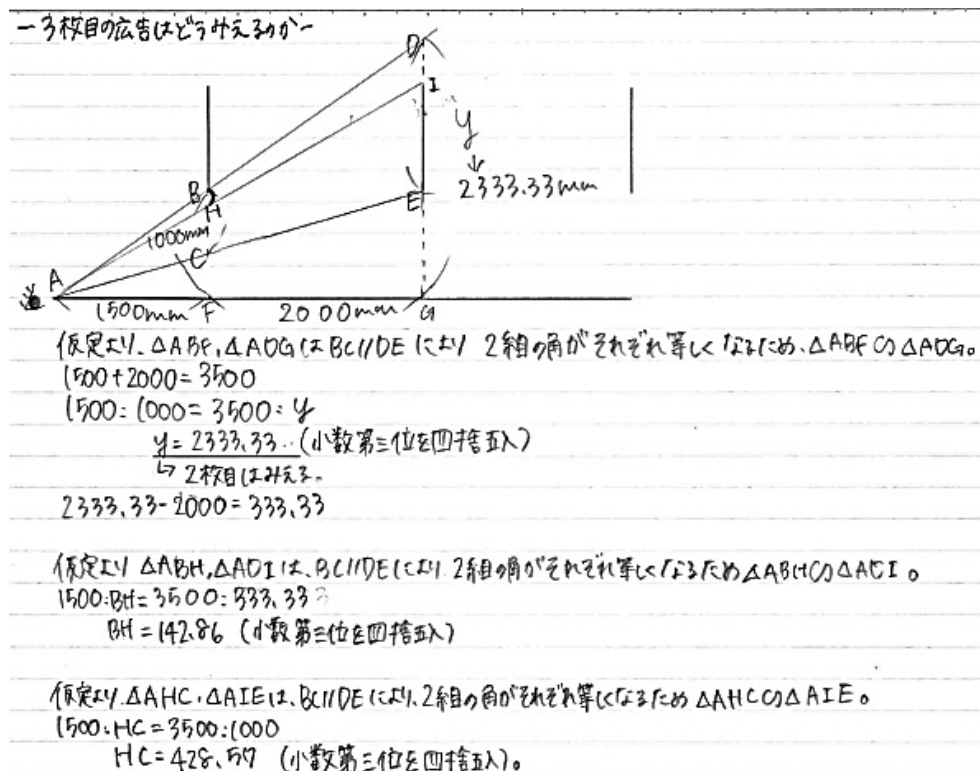 －3枚目の広告はどうみえるのか－
D
I
y
↓
2333.33mm
B
H
E
1000mm
C
A
1500mm F 2000mm G
仮定より、△ABF,△ADGはBC//DEにより 2組の角がそれぞれ等しくなるため、△ABF∽△ADG。
1500+2000=3500
1500:1000=3500:y
y=2333.33‥(小数第三位を四捨五入)
↳2枚目はみえる。
2333.33-2000=333.33
仮定より △ABH,△ADIは、BC//DEにより 2組の角がそれぞれ等しくなるため△ABH∽△ADI。
1500:BH=3500:333.33
BH=142.86 (小数第三位を四捨五入)
仮定より、△AHC,△AIEは、BC//DEにより、2組の角がそれぞれ等しくなるため △AHC∽△AIE。
1500:HC=3500:1000
HC=428.57 (小数第三位を四捨五入)。